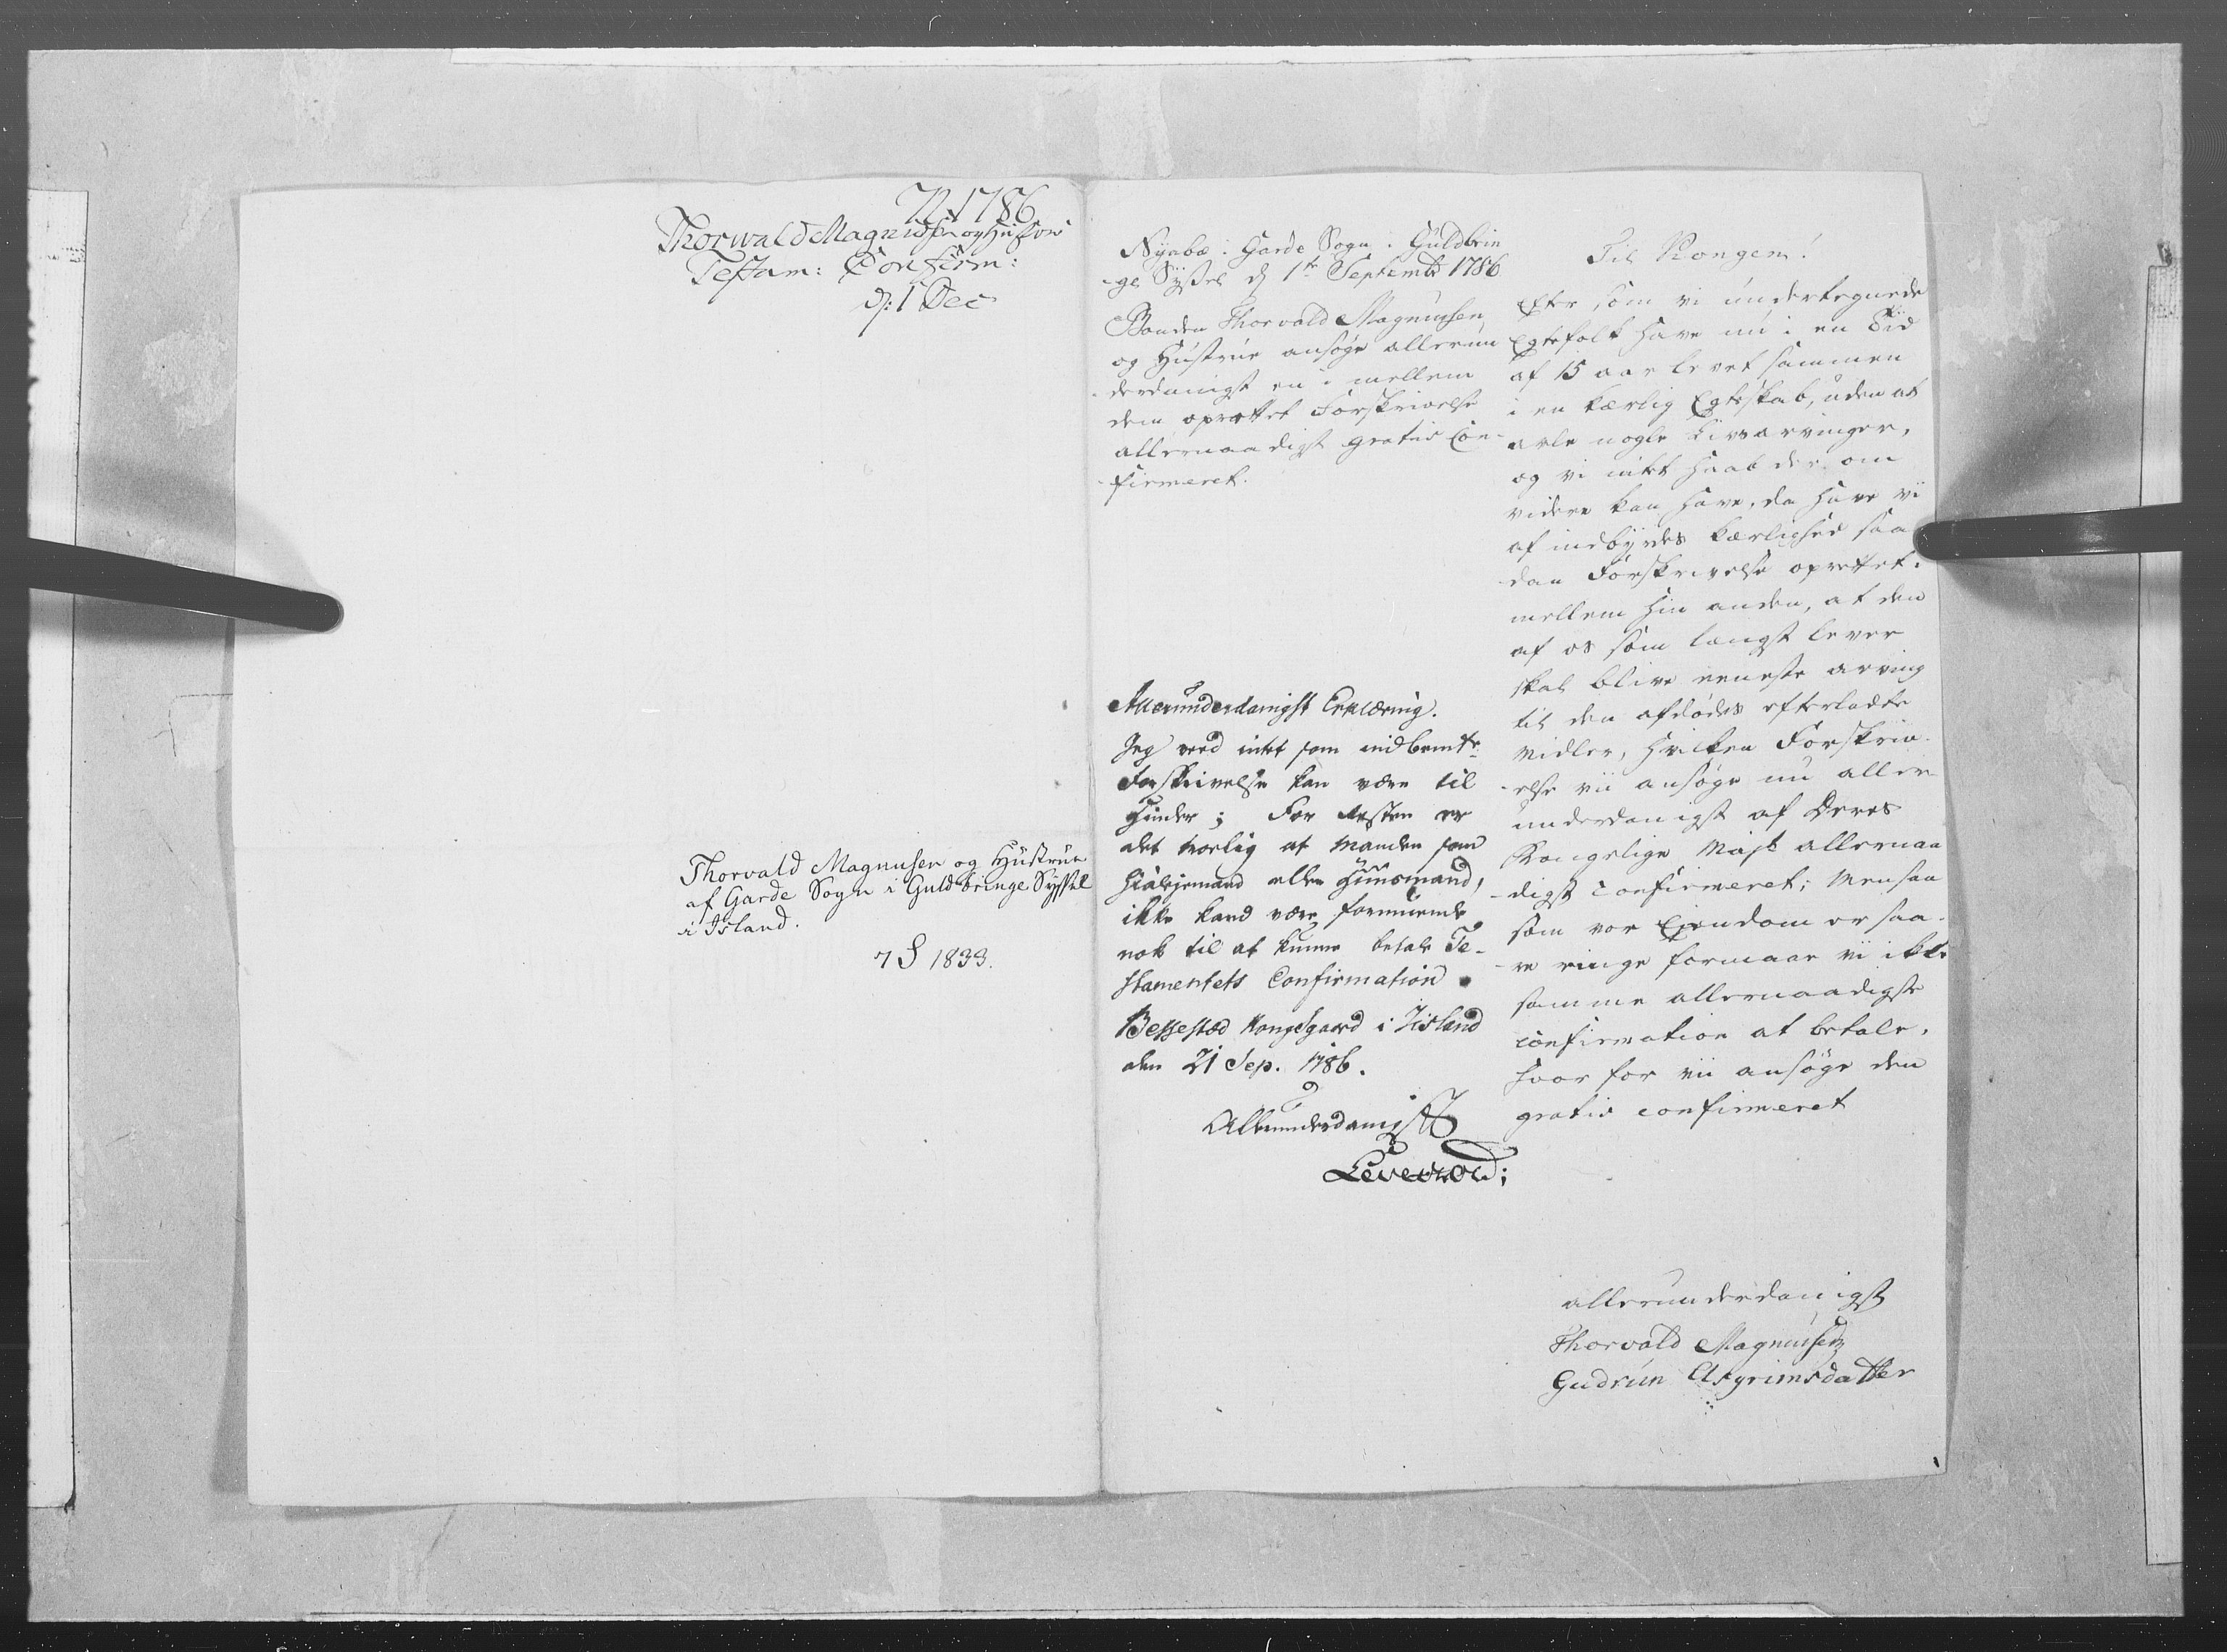 1786
Thorwald Magnusen og Hustrues
Testam: Confirm:
d: 1 Dec
Thorvald Magnusen og Hustrue
af Garde Sogn i Guldbringe Syssel
i Island.
7 S 1833.
Nyebæ i Garde Sogn i Guldbrin
-ge Syssel d 1te Septembr 1786
Bonden Thorvald Magnussen,
og Hustrue ansøge allerun
-derdanigst en i mellem
dem oprettet Forskrivelse
allernaadigst gratis Con-
-firmeret.
Allerunderdanigst Erklæring.
Jeg veed intet som indbemte
Forskrivelse kan være til
Hinder; For Resten er
det troelig at Manden som
Hialejemand eller Huusmand,
ikke kand være formuende
nok til at kunne betale Te-
stamentets Confirmation
Bessested Kongsgaard i Iisland
den 21 Sep. 1786.
Allerunderdanigst
Levetzow;
Til Kongen!
Efter som vi undertegnede
Egtefolk have nu i en Tid
af 15 aar levet sammen
i en kærlig Egteskab, uden at
avle nogle Livsarvinger,
og vi intet Haab der om
videre kan have, da have vi
af indbyrdes kærlighed saa
-dan Forskrivelse oprettet i
mellem hin anden, at den
af os som længst lever
skal blive eeneste arving
til den afdødes efterladte
Midler, hvilken Forskriv
-else vii ansøge nu aller
underdanigst af Deres
Kongelige Majt allernaa
-digst confirmeret; Men saa
som vor Ejendom er saa-
-re ringe formaar vi ikke
samme allernaadigste
confirmation at betale,
hvor for vii ansøge den
gratis confirmeret
allerunderdanigst
Thorvald Magnussen
Gudrun Asgrimsdatter